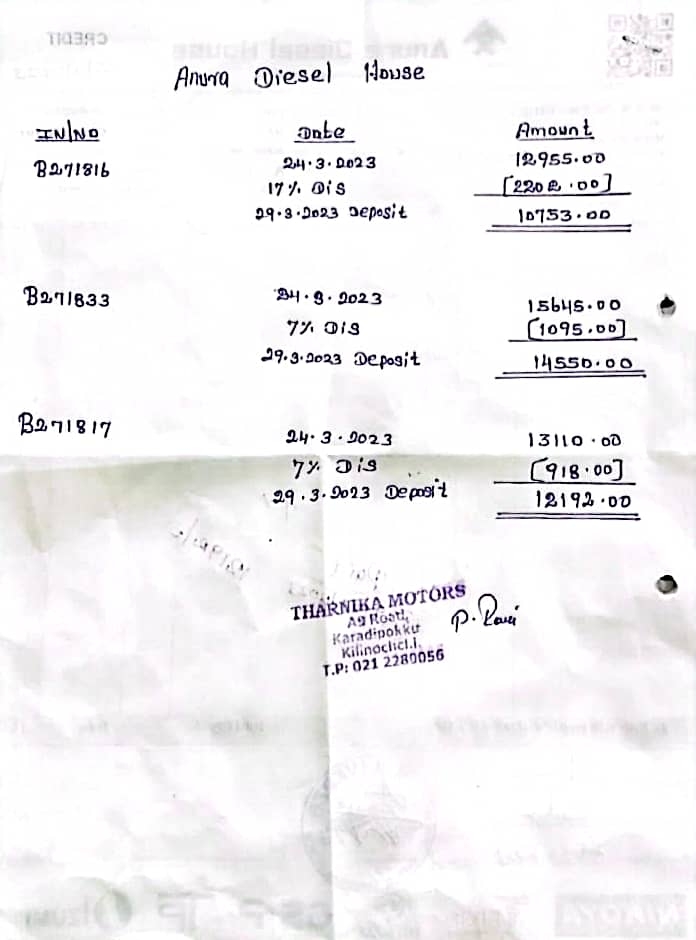 CREDIT
Anura Diesel House
Anura Diesel House
IN/NO Date Amount
B271816 24.3.2023 12955.00
17% Dis [2202.00]
29.3.2023 Deposit 10753.00
B271833 24.3.2023 15645.00
7% Dis [1095.00]
29.3.2023 Deposit 14550.00
B271817 24.3.2023 13110.00
7% Dis [918.00]
29.3.2023 Deposit 12192.00
THARNIKA MOTORS
A9 Road,
Karadipokku
Kilinochchi.
T.P: 021 2280056
P. Ravi